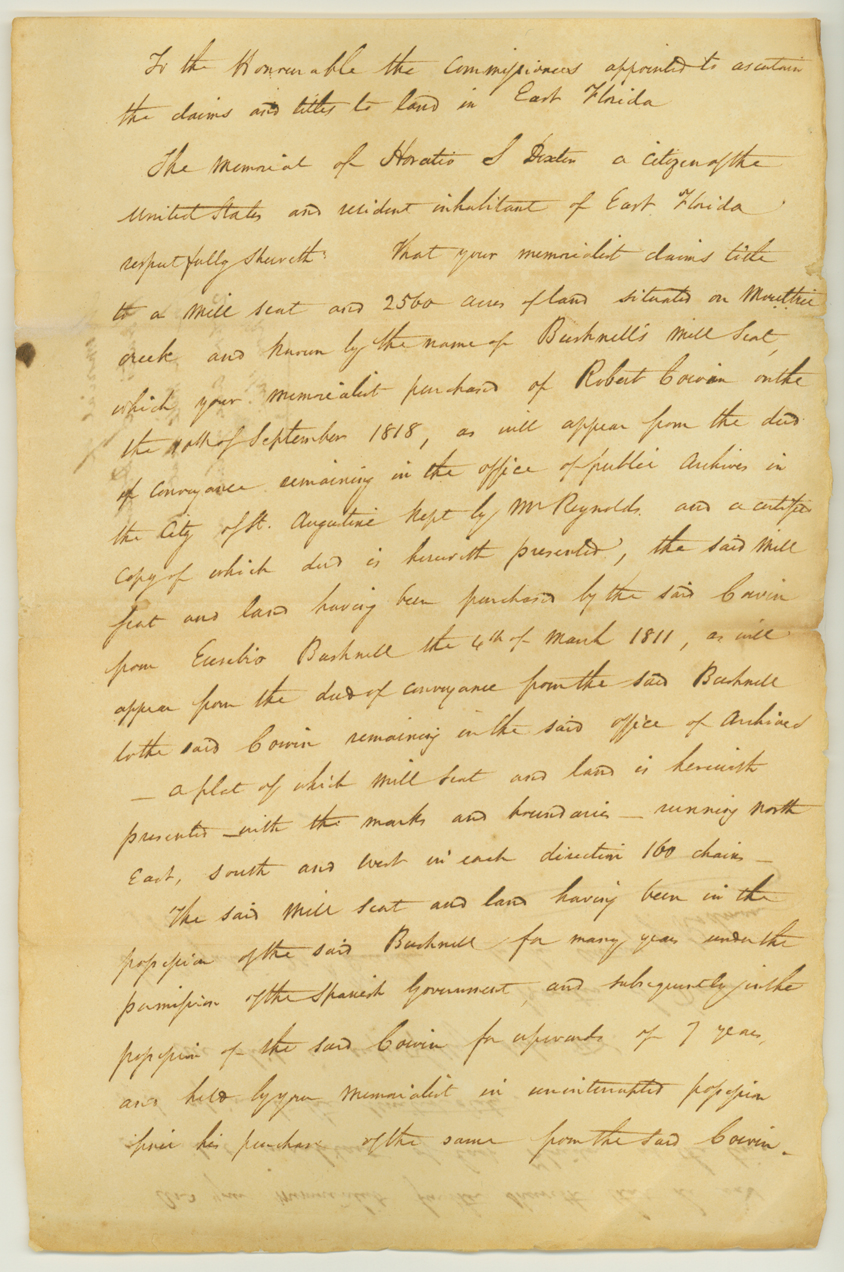 To the Honourable the Commissioners appointed to ascertain
the claims and titles to land in East Florida
The Memorial of Horatio S Dexter a citizen of the
United States and resident inhabitant of East Florida
respectfully sheweth That your memorialist claims title
to a Mill seat and 2560 acres of land situated on Moultrie
creek and known by the name of Bushnell's Mill Seat,
which your memorialist purchased of Robert Cowin on the
the of September 1818, as will appear from the deed
of conveyance remaining in the office of public Archives in
the City of St. Augustine kept by Mr Reynolds. and a certified
copy of which deed is herewith presented, the said Mill
seat and land having been purchased by the said Cowin
from Eusebio Bushnell the 4th of March 1811, as will
appear from the deed of conveyance from the said Bushnell
to the said Cowin remaining in the said office of Archives
— a plat of which Mill Seat and land is herewith
presented with the marks and boundaries — running North
East, South and West in each direction 160 chains —
The said Mill Seat and land having been in the
possession of the said Bushnell for many years under the
permission of the Spanish Government, and subsequently in the
possession of the said Cowin for upwards of 7 years,
and held by your Memorialist in uninterrupted possession
since his purchase of the same from the said Cowin.